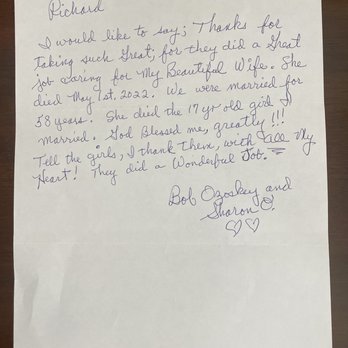 Richard
I would like to say; Thanks for
taking such Great, for they did a Great
job caring for My Beautiful Wife. She
died May 1st. 2022. We were married for
58 years. She died the 17 yr old girl I
married. God Blessed me, greatly!!!
Tell the girls, I thank them, with all My
Heart! They did a Wonderful Job.
Bob Ozoskey and
Sharon O.